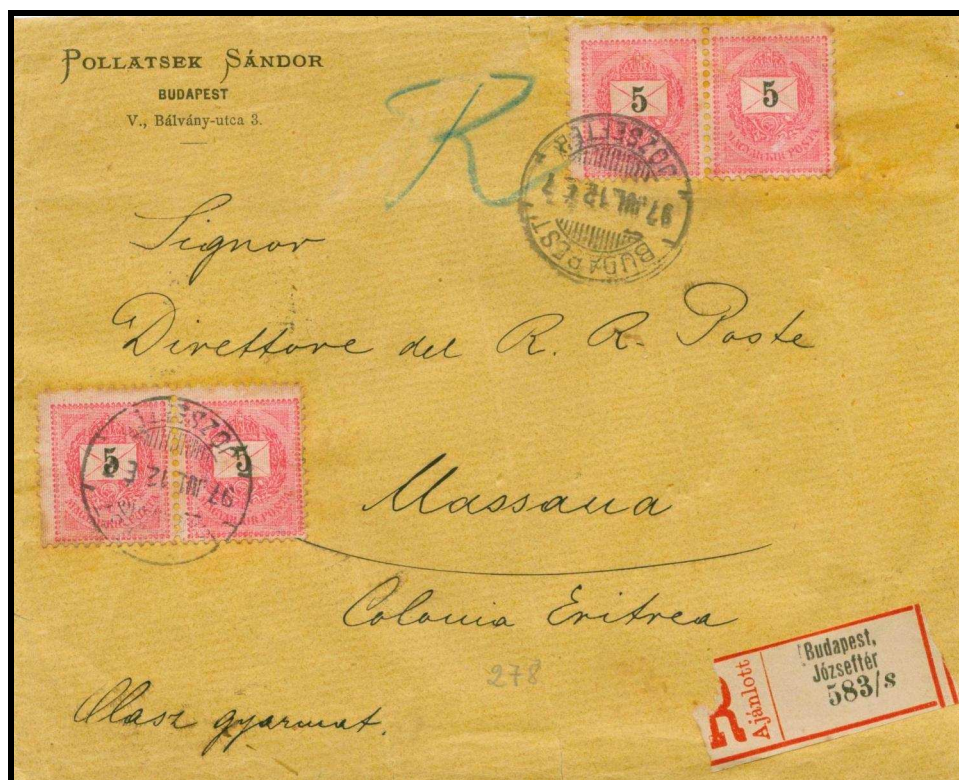 POLLATSEK SÁNDOR
BUDAPEST
V., Bálvány-utca 3.
R
5
5
MAGYAR KIR. POSTA
BUDAPEST
JÓZSEFTÉR
97 JUL 12
Signor
Direttore del R. R. Poste
5
5
97 JUL 12 É
Massaua
Colonia Eritrea
278
Olasz gyarmat.
R
Ajánlott
Budapest,
Józseftér
583/s